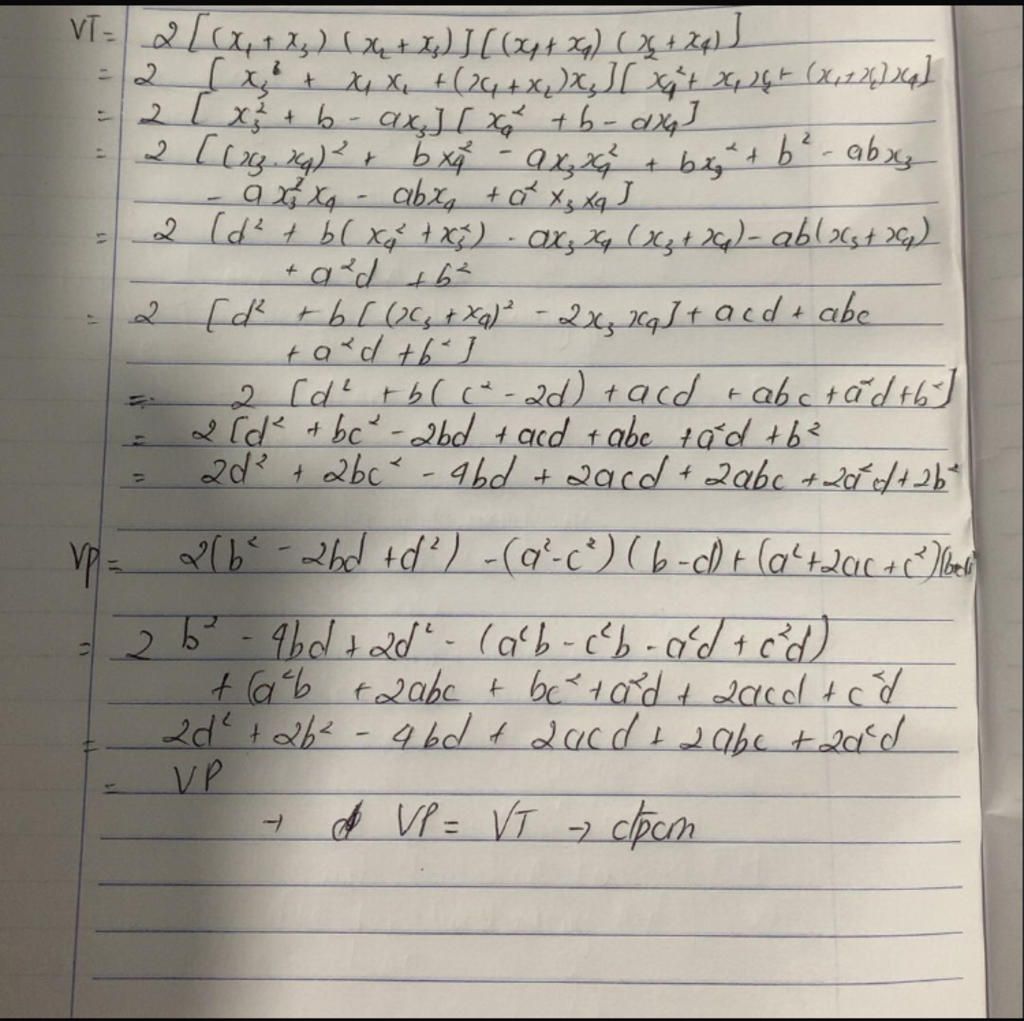 VT = 2[(x₁ + x₃)(x₂ + x₃)][(x₁ + x₄)(x₂ + x₄)]
= 2 [x₃² + x₁x₂ + (x₁ + x₂)x₃][x₄² + x₁x₂ + (x₁ + x₂)x₄]
= 2 [x₃² + b - ax₃][x₄² + b - ax₄]
= 2 [(x₃.x₄)² + bx₄² - ax₃x₄² + bx₃² + b² - abx₃
- ax₃²x₄ - abx₄ + a²x₃x₄]
= 2 [d² + b(x₄² + x₃²) - ax₃x₄(x₃ + x₄) - ab(x₃ + x₄)
+ a²d + b²
= 2 [d² + b[(x₃ + x₄)² - 2x₃x₄] + acd + abc
+ a²d + b²]
= 2 [d² + b(c² - 2d) + acd + abc + a²d + b²]
= 2[d² + bc² - 2bd + acd + abc + a²d + b²
= 2d² + 2bc² - 4bd + 2acd + 2abc + 2a²d + 2b²
VP = 2(b² - 2bd + d²) - (a² - c²)(b - d) + (a² + 2ac + c²)(b+d)
= 2b² - 4bd + 2d² - (a²b - c²b - a²d + c²d)
+ (a²b + 2abc + bc² + a²d + 2acd + c²d
= 2d² + 2b² - 4bd + 2acd + 2abc + 2a²d
= VP
→ VP = VT → đpcm